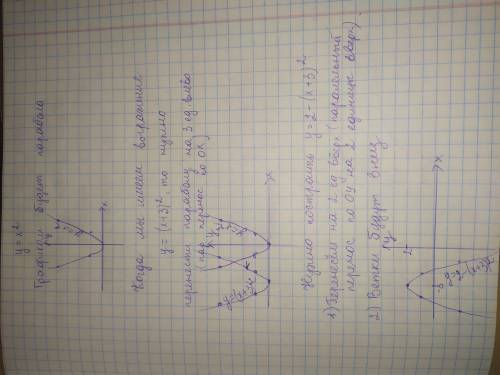 y = x²
Графиком будет парабола
y
x
y = x²
Когда мы имеем выражение
y = (x+3)², то нужно
перенести параболу на 3 ед. влево
(пар. перенос по OX)
y
x
y = (x+3)²
Нужно построить y = 2 - (x+3)²
1) Переносим на 2 ед. вверх (параллельный
перенос по Oy на 2 единицы вверх).
2) Ветки будут вниз
y
2
x
-3
y = 2 - (x+3)²